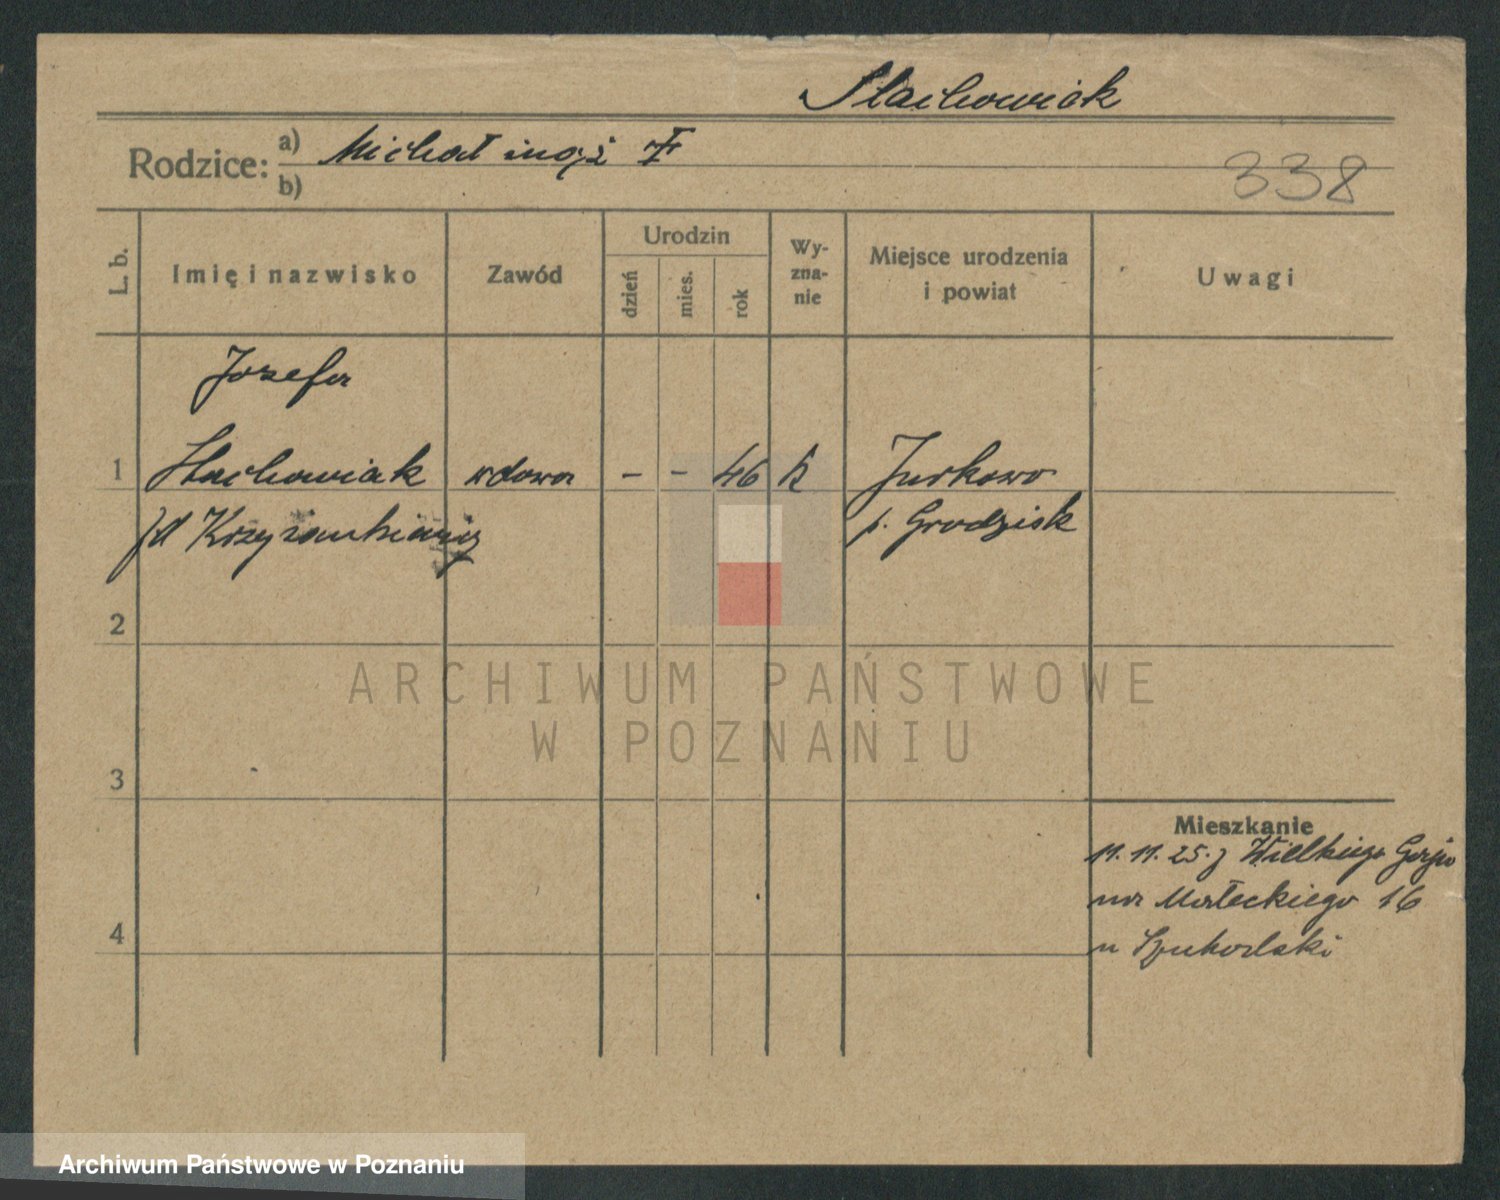 Stachowiak
Rodzice: a) Michał mąż
b)
338
L. b.
Imię i nazwisko
Zawód
Urodzin
dzień
mies.
rok
Wy-
zna-
nie
Miejsce urodzenia
i powiat
Uwagi
Józefa
1 Stachowiak wdowa - - 46 k Jurkowo
p. Grodzisk
2
3
4
Mieszkanie
11.11.25. z
na Małeckiego 16
u
ARCHIWUM PAŃSTWOWE
W POZNANIU
Archiwum Państwowe w Poznaniu